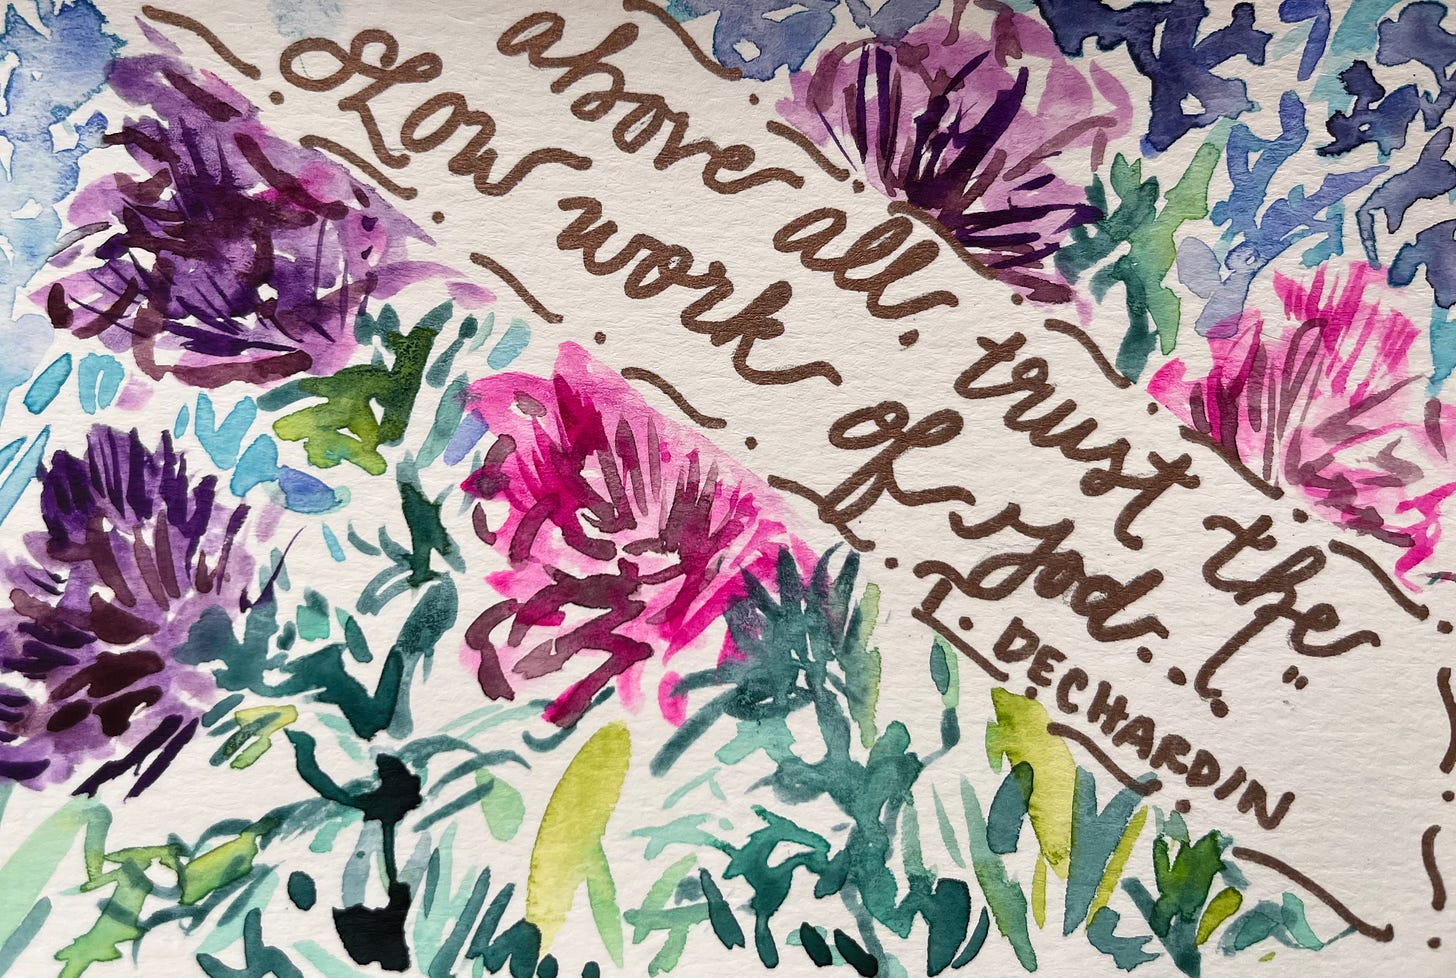 above all, trust the
slow work of God..."
T. DECHARDIN